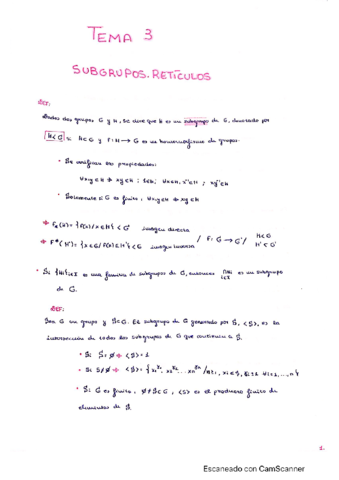 TEMA 3
SUBGRUPOS. RETÍCULOS
DEF:
Dados dos grupos G y H, se dice que H es un subgrupo de G, denotado por
H<G ≡ H⊂G y i: H→G es un homomorfismo de grupos.
• Se verifican las propiedades:
∀x,y∈H ⇒ xy∈H ; 1∈H; ∀x∈H, x⁻¹∈H ; xy⁻¹∈H
• Solamente si G es finito, ∀x,y∈H ⇒ xy∈H
F*(H)= {F(x)/x∈H} < G' imagen directa
F*(H')= {x∈G/F(x)∈H'} < G imagen inversa / F: G→G' / H<G H'<G'
• Si {Hi}i∈I es una familia de subgrupos de G, entonces ∩Hi i∈I es un subgrupo
de G.
DEF:
Sea G un grupo y S⊂G. El subgrupo de G generado por S, <S>, es la
intersección de todos los subgrupos de G que contienen a S.
• Si S=∅ ⇒ <S>=1
• Si S≠∅ ⇒ <S>= {
• Si G es finito, ∅≠S⊂G, <S> es el producto finito de
elementos de S.
1.
Escaneado con CamScanner